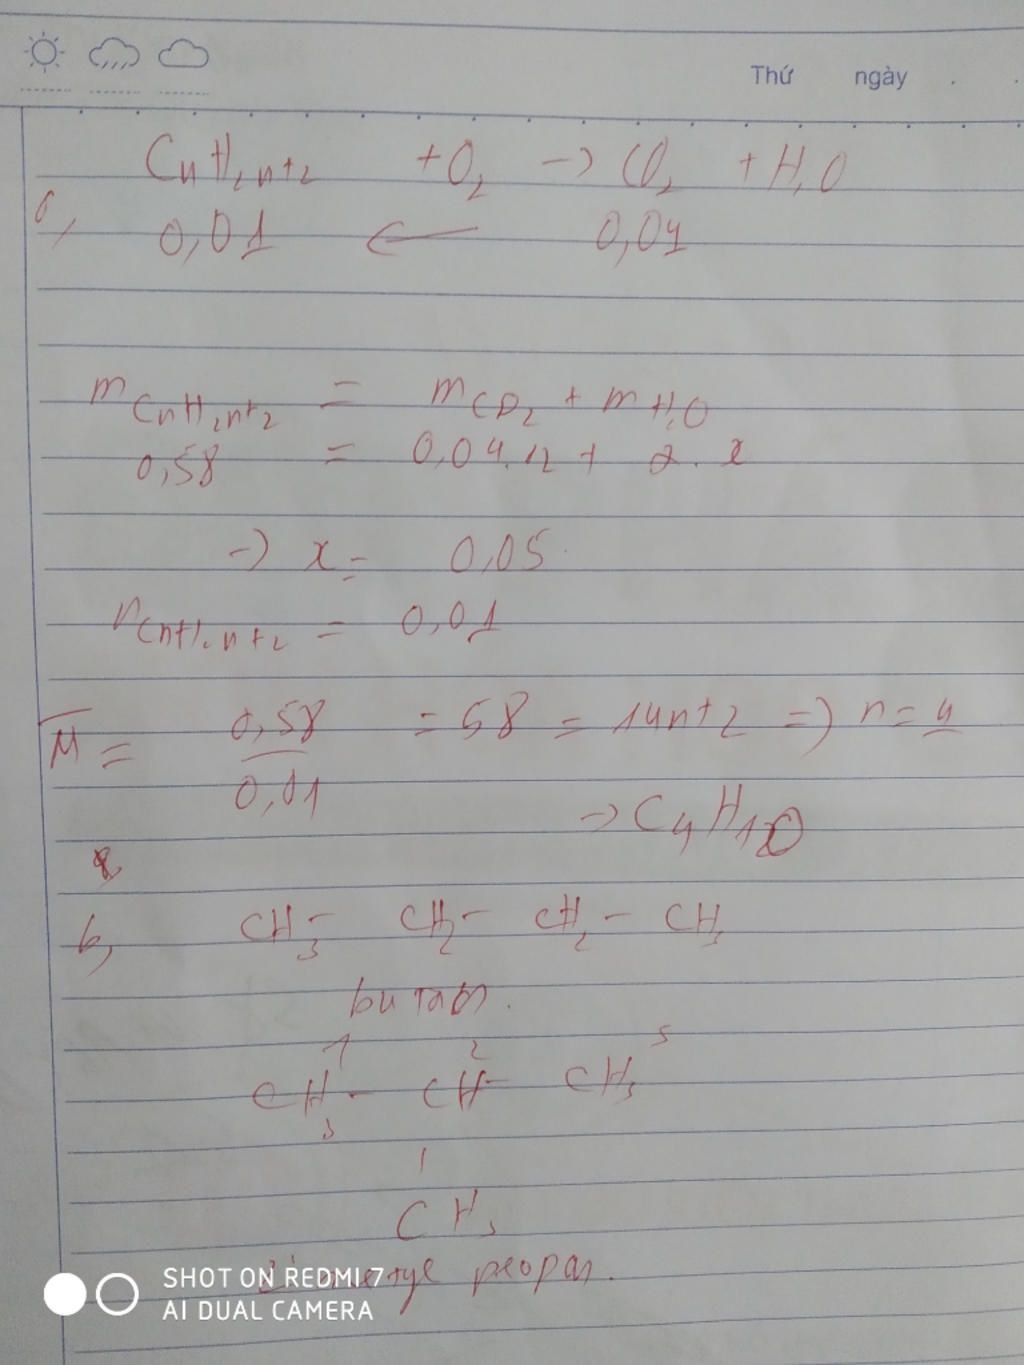 Thứ ngày
CnH2n+2 + O2 -> CO2 + H2O
0,01 <— 0,04
m CnH2n+2 = m CO2 + m H2O
0,58 = 0,04.12 + 2.x
-> x = 0,05
n CnH2n+2 = 0,01
M = 0,58/0,01 = 58 = 14n+2 => n = 4
-> C4H10
b, CH3 - CH2 - CH2 - CH3
butan.
1 2
CH3 - CH - CH3
|
CH3
propan.
SHOT ON REDMI 7
AI DUAL CAMERA